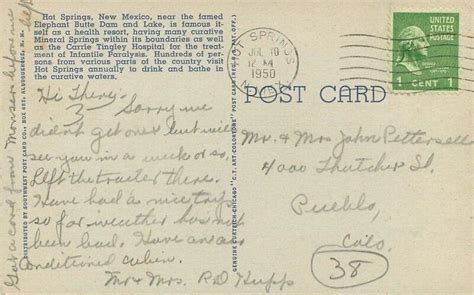 Hot Springs, New Mexico, near the famed
Elephant Butte Dam and Lake, is famous it-
self as a health resort, having many curative
Mineral Springs within its boundaries as well
as the Carrie Tingley Hospital for the treat-
ment of Infantile Paralysis. Hundreds of per-
sons from various parts of the country visit
Hot Springs annually to drink and bathe in
the curative waters.
HOT SPRINGS
JUL 10
12 M
1950
N. MEX.
UNITED STATES
POSTAGE
1 CENT 1
POST CARD
Hi There:-
Sorry we
didn't get one but will
see you in a week or so.
Left the trailer there.
Have had a nice trip
so far weather has not
been bad. Have an air
conditioned cabin.
Mr & Mrs. R D Hupp
Got a card from Monsen before we left
Mr. & Mrs John Pettersell
4000 Thatcher St.
Pueblo,
Colo.
38
PUB. BY SOUTHWEST POST CARD CO., BOX 685, ALBUQUERQUE, N. M.
GENUINE CURTEICH-CHICAGO "C. T. ART-COLORTONE" POST CARD